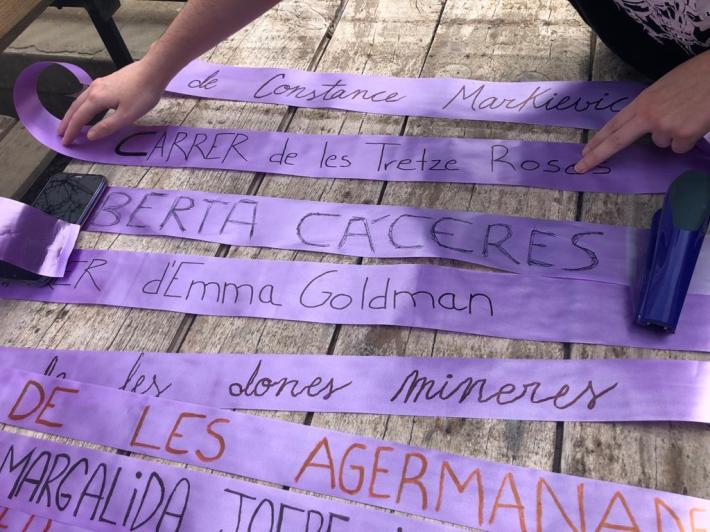 de Constance Markievic
CARRER de les Tretze Roses
BERTA CÁCERES
ER d'Emma Goldman
de les dones mineres
DE LES AGERMANADES
MARGALIDA JOFRE